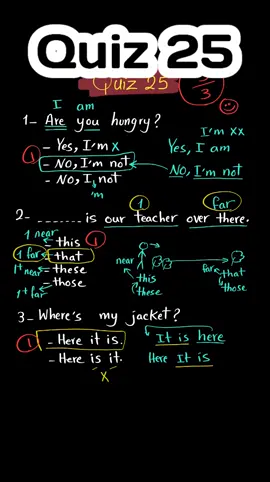 Quiz 25
Quiz 25
3
I am
1- Are you hungry?
- Yes, I'm x
- No, I'm not
- No, I not
'm
1
I'm xx
Yes, I am
No, I'm not
1
far
2- ------ is our teacher over there.
1 near
this
1
1 far
that
1+ near
these
1+ far
those
near
this
these
far
that
those
3- Where's my jacket?
1
- Here it is.
- Here is it.
x
It is here
Here It is